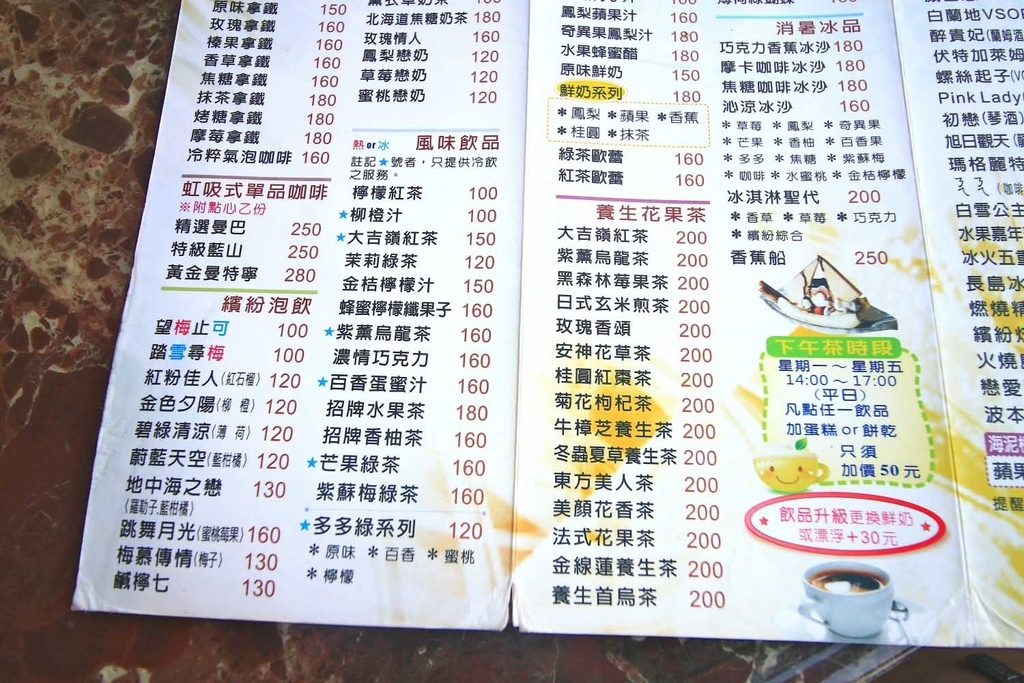 原味拿鐵 150
玫瑰拿鐵 160
榛果拿鐵 160
香草拿鐵 160
焦糖拿鐵 180
抹茶拿鐵 180
烤糖拿鐵 180
摩莓拿鐵 180
冷粹氣泡咖啡 160
虹吸式單品咖啡
※附點心乙份
精選曼巴 250
特級藍山 250
黃金曼特寧 280
繽紛泡飲
望梅止可 100
踏雪尋梅 100
紅粉佳人(紅石榴) 120
金色夕陽(柳 橙) 120
碧綠清涼(薄 荷) 120
蔚藍天空(藍柑橘) 120
地中海之戀 130
(羅勒子,藍柑橘)
跳舞月光(蜜桃莓果) 160
梅慕傳情(梅子) 130
鹹檸七 130
北海道焦糖奶茶 180
玫瑰情人 160
鳳梨戀奶 120
草莓戀奶 120
蜜桃戀奶 120
熱or冰 風味飲品
註記★號者，只提供冷飲
之服務。
檸檬紅茶 100
★柳橙汁 100
★大吉嶺紅茶 150
茉莉綠茶 120
金桔檸檬汁 150
蜂蜜檸檬纖果子 160
★紫薰烏龍茶 160
濃情巧克力 160
★百香蛋蜜汁 160
招牌水果茶 180
招牌香柚茶 160
★芒果綠茶 160
紫蘇梅綠茶 160
★多多綠系列 120
＊原味 ＊百香 ＊蜜桃
＊檸檬
鳳梨蘋果汁 160
奇異果鳳梨汁 160
水果蜂蜜醋 180
原味鮮奶 150
鮮奶系列 180
＊鳳梨 ＊蘋果 ＊香蕉
＊桂圓 ＊抹茶
綠茶歐蕾 160
紅茶歐蕾 160
養生花果茶
大吉嶺紅茶 200
紫薰烏龍茶 200
黑森林莓果茶 200
日式玄米煎茶 200
玫瑰香頌 200
安神花草茶 200
桂圓紅棗茶 200
菊花枸杞茶 200
牛樟芝養生茶 200
冬蟲夏草養生茶 200
東方美人茶 200
美顏花香茶 200
法式花果茶 200
金線蓮養生茶 200
養生首烏茶 200
消暑冰品
巧克力香蕉冰沙 180
摩卡咖啡冰沙 180
焦糖咖啡冰沙 180
沁涼冰沙 160
＊草莓 ＊鳳梨 ＊奇異果
＊芒果 ＊香柚 ＊百香果
＊多多 ＊焦糖 ＊紫蘇梅
＊咖啡 ＊水蜜桃 ＊金桔檸檬
冰淇淋聖代 200
＊香草 ＊草莓 ＊巧克力
＊繽紛綜合
香蕉船 250
下午茶時段
星期一～星期五
14:00～17:00
(平日)
凡點任一飲品
加蛋糕or餅乾
只須
加價50元
★飲品升級更換鮮奶★
或漂浮+30元
白蘭地VSO
醉貴妃(蘭姆酒
伏特加萊姆
螺絲起子(VO
Pink Lady
初戀(琴酒)
旭日觀天
瑪格麗特
ㄋㄋ(咖啡
白雪公主
水果嘉年
冰火五重
長島冰
燃燒
繽紛
火燒
戀愛
波本
海泥
蘋果
提醒